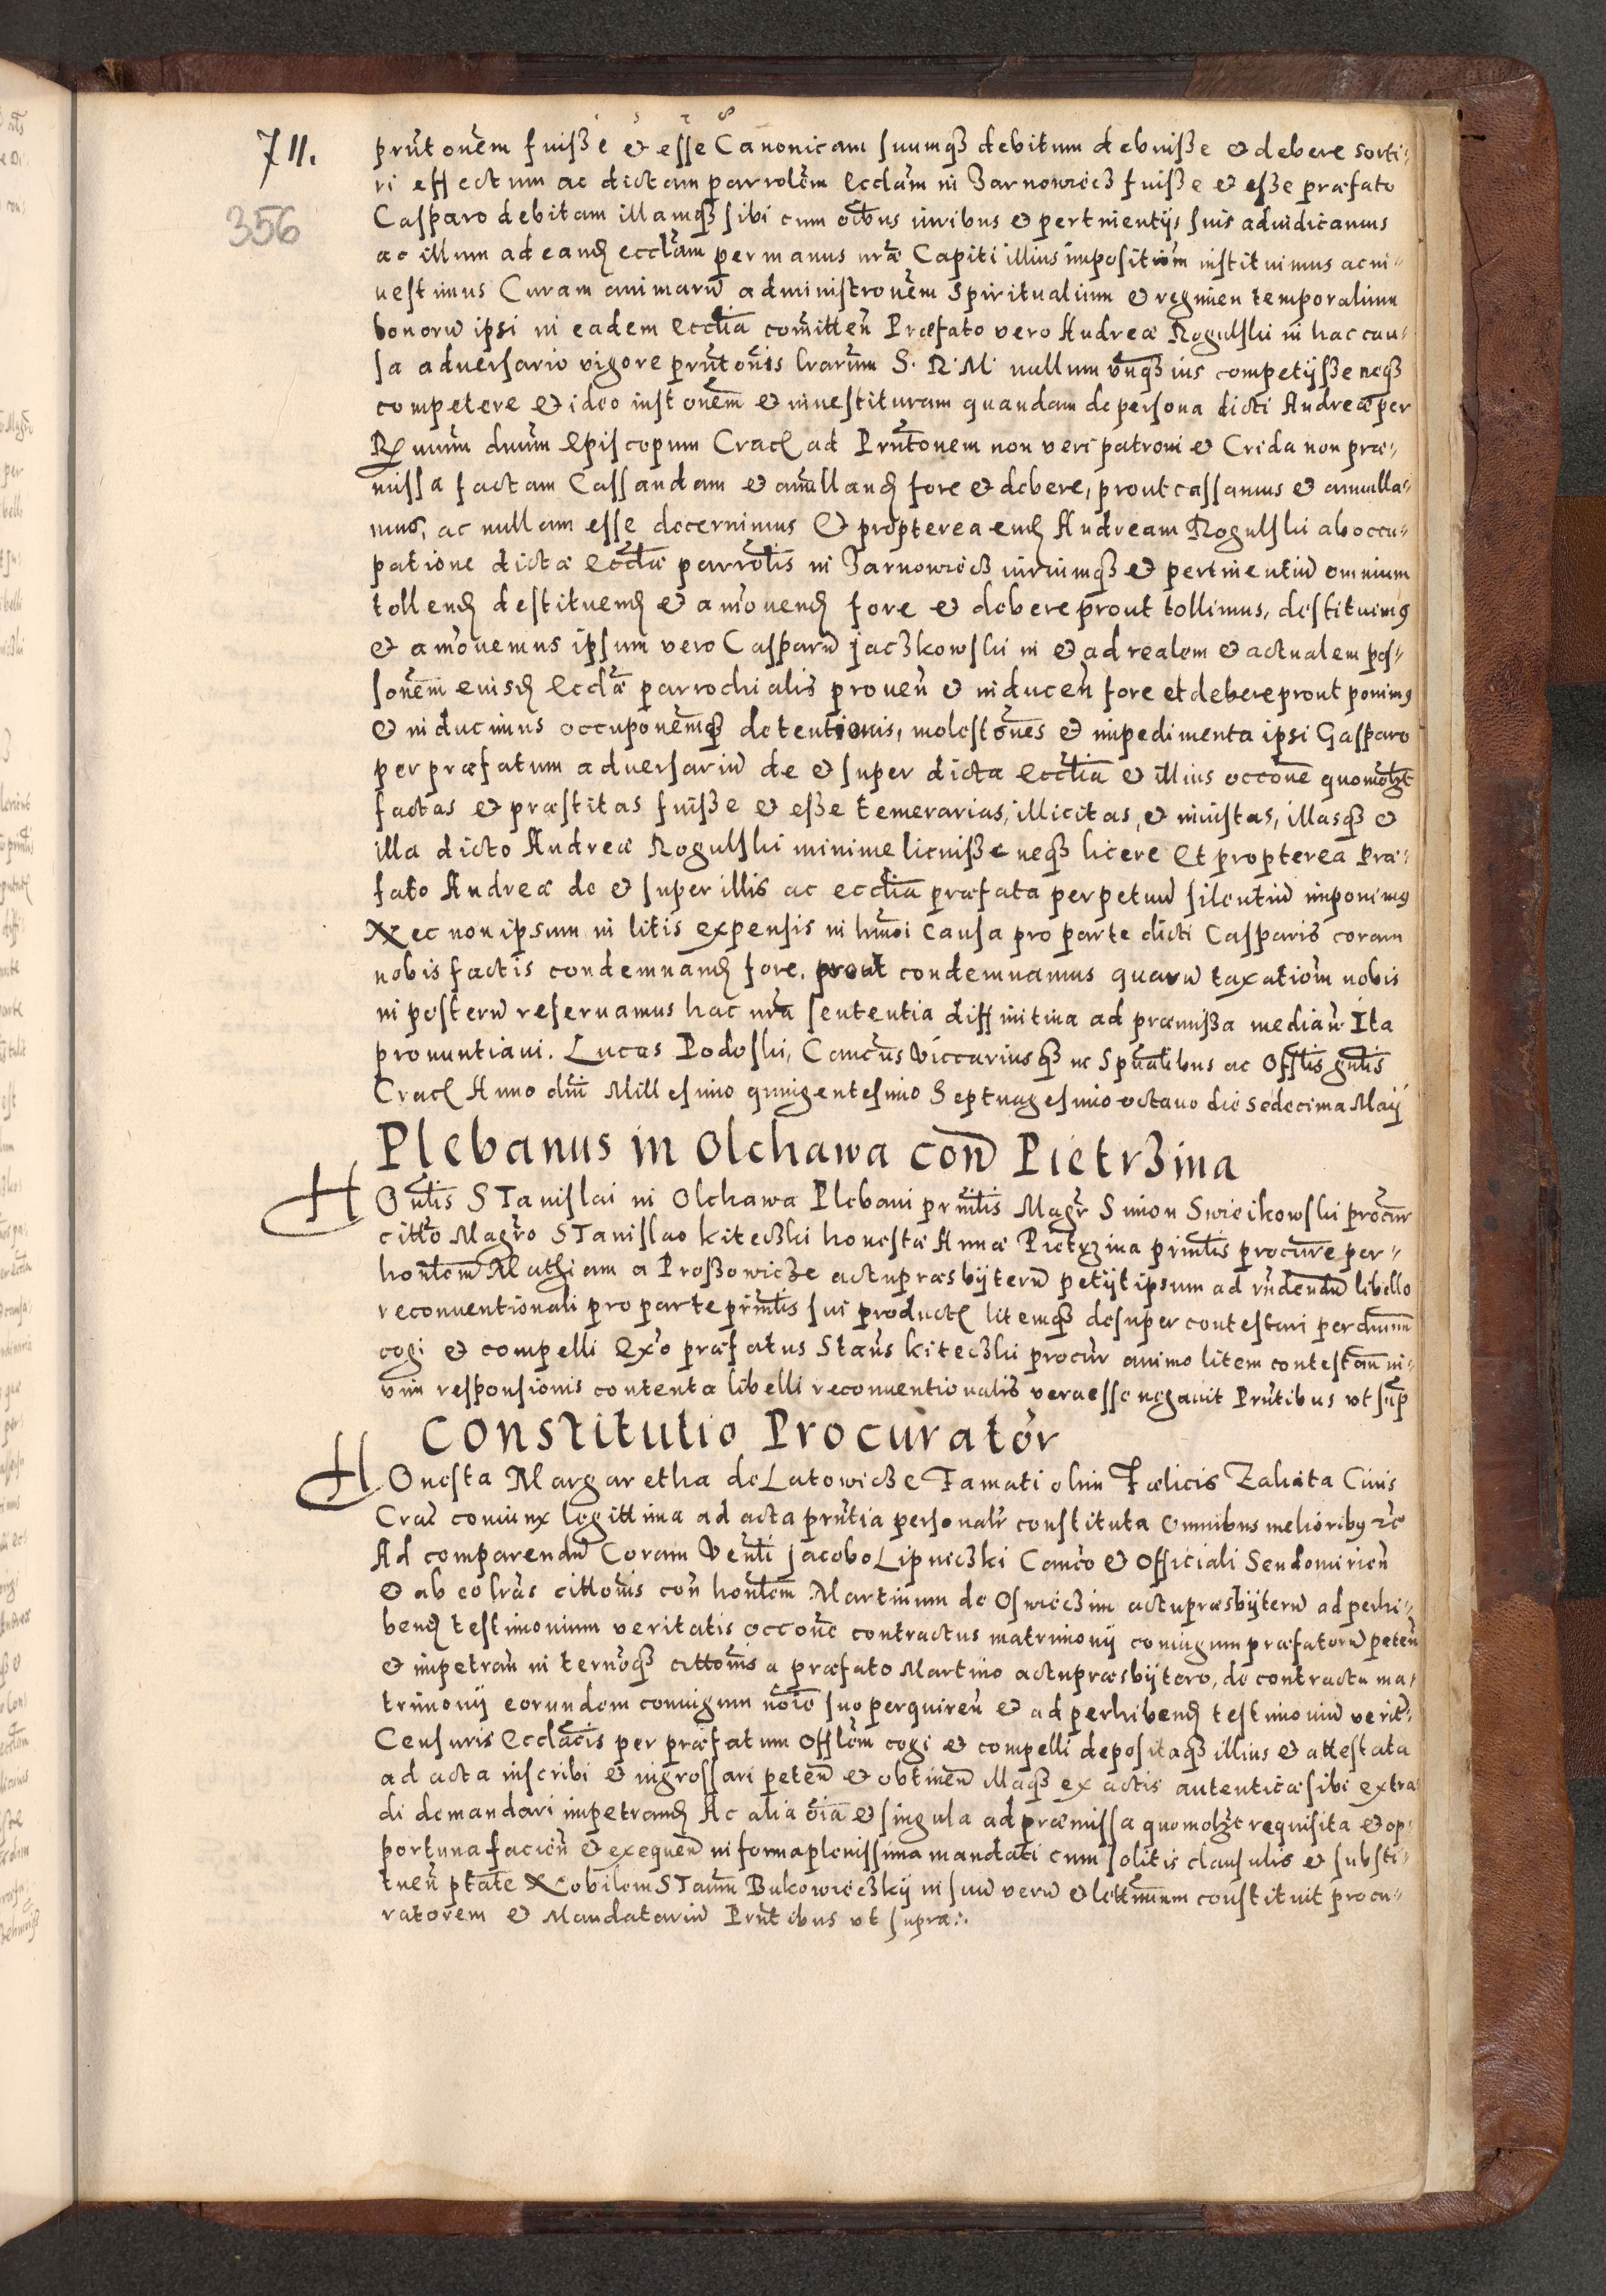 711.
356
prñtonem fuisse et esse Canonicam suumqȝ debitum debuisse et debere sorti-
ri effectum ac dictam parrolem Ecclãm in Żarnowiecȝ fuisse et esse præfato
Casparo debitam illamqȝ sibi cum oĩbus iuribus et pertinentijs suis adiudicamus
ac illum ad eand ecclãm per manus nrã Capiti illius impositiom instituimus ac in-
uestimus Curam animarũ administronem Spiritualium et regimen temporalium
bonorũ ipsi in eadem Ecclĩa comitten Præfato vero Andreæ Rogulski in hac cau-
sa adversario vigore prñtonis lrarum S. R. M. nullum unqȝ ius competijsse neqȝ
competere et ideo instonem et inuestituram quandam de persona dicti Andreæ per
Rmum dnum Episcopum Crac ad Prñtonem non veri patroni et Crida non præ-
missa factam Cassandam et anulland fore et debere, prout cassamus et annulla-
mus, ac nullam esse decernimus Et propterea eund Andream Rogulski ab occu-
patione dictæ Ecclæ parrolis in Żarnowiecȝ iuriumqȝ et pertinentiũ omnium
tollend destituend et amouend fore et debere prout tollimus, destituimus
et amouemus ipsum vero Casparũ jacȝkowski in et ad realem et actualem pos-
sonem eiusd Ecclæ parrochialis prouen et inducen fore et debere prout ponimus
et inducimus occuponemqȝ detentionis, molestones et impedimenta ipsi Gasparo
per præfatum adversariũ de et super dicta Ecclĩa et illius occone quomolȝt
factas et præstitas fuisse et esse temerarias, illicitas, et iniustas, illasqȝ et
illa dicto Andreæ Rogulski minime licuisse neqȝ licere Et propterea Præ-
fato Andreæ de et super illis ac ecclĩa præfata perpetuũ silentiũ imponimus
Nec non ipsum in litis expensis in hmõi Causa pro parte dicti Casparis coram
nobis factis condemnand fore, prout condemnamus quarũ taxatiom nobis
in posterũ reseruamus hac nrã sententia diffinitiua ad præmissa median Ita
pronuntiaui. Lucas Podoski, Cancus Viccariusqȝ in Spũalibus ac Offlis gnlis
Crac Anno dni Millesimo quingentesimo Septuagesimo octauo die Sedecima Maij
Plebanus in Olchawa con Pietrȝina
HOnlis STanislai in Olchawa Plebani prinlis Magr Simon Swieikowski procur
citto Magro STanislao kitecȝki honestæ Annæ Pietrȝina prinlis procure per-
honlem Mathiam a Prossowicȝe actu præsbyterũ petijt ipsum ad rñdendũ libello
reconuentionali pro parte prinlis sui product litemqȝ desuper contestari per dnum
cogi et compelli Exo præfatus Staus kitecȝki procur animo litem contestan in-
vim responsionis contenta libelli reconuentionalis vera esse negauit Prñtibus vt sup
Constitutio Procurator
HOnesta Margaretha de Latowicȝe Famati olim Fælicis Zahata Ciuis
Crac coniunx legittima ad acta prñtia personalr constituta Omnibus melioribus etc
Ad comparendũ Coram Venli jacobo Lipnicȝki Canco et Officiali Sendomirien
et ab eo lras cittonis con honlem Martinum de Oswiecȝim actu præsbyterũ ad perhi-
bend testimonium veritatis occone contractus matrimonij coniugum præfatorũ peten
et impetran in ternoqȝ cittonis a præfato Martino actu præsbytero, de contractu ma-
trimonij eorundem coniugum noie suo perquiren et ad perhibend testimoniũ verit
Censuris Ecclacis per præfatum Offlem cogi et compelli depositaqȝ illius et attestata
ad acta inscribi et ingrossari peten et obtinen illaqȝ ex actis autentica sibi extra-
di demandari impetrand Ac alia oĩa et singula ad præmissa quomolȝt requisita et op-
portuna facien et exequen in forma plenissima mandati cum solitis clausulis et substi-
tuen ptate Nobilem STaum Bukowiecȝkij in suũ verũ et lettimum constituit procu-
ratorem et Mandatariũ Prñtibus vt supra.